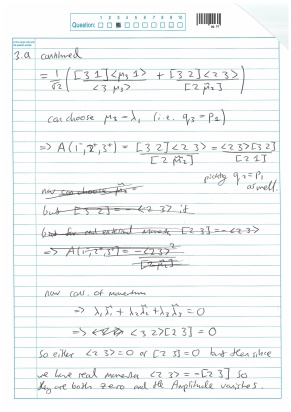 Question: 1 2 3 4 5 6 7 8 9 10
3.a continued
= 1/√2 ( [3 1]<μ₃ 1> / <3 μ₃> + [3 2]<2 3> / [2 μ̃₂] )
can choose μ₃ = λ₁ (i.e. q₃ = p₁)
=> A(1⁻,2⁺,3⁺) = [3 2]<2 3> / [2 μ̃₂] = <2 3>[3 2] / [2 1]
picking q₂ = P₁
as well.
now can choose μ̃₂ =
but [3 2] = - <2 3> if
but for real external momenta [2 3] = - <2 3>
=> A(1⁻,2⁺,3⁺) = -<2 3>² / [2 μ̃₂]
now cons. of momentum
=> λ₁λ̃₁ + λ₂λ̃₂ + λ₃λ̃₃ = 0
=> <3 2>[2 3] = 0
So either <2 3> = 0 or [2 3] = 0 but then since
we have real momenta <2 3> = -[2 3] so
they are both zero and the Amplitude vanishes.